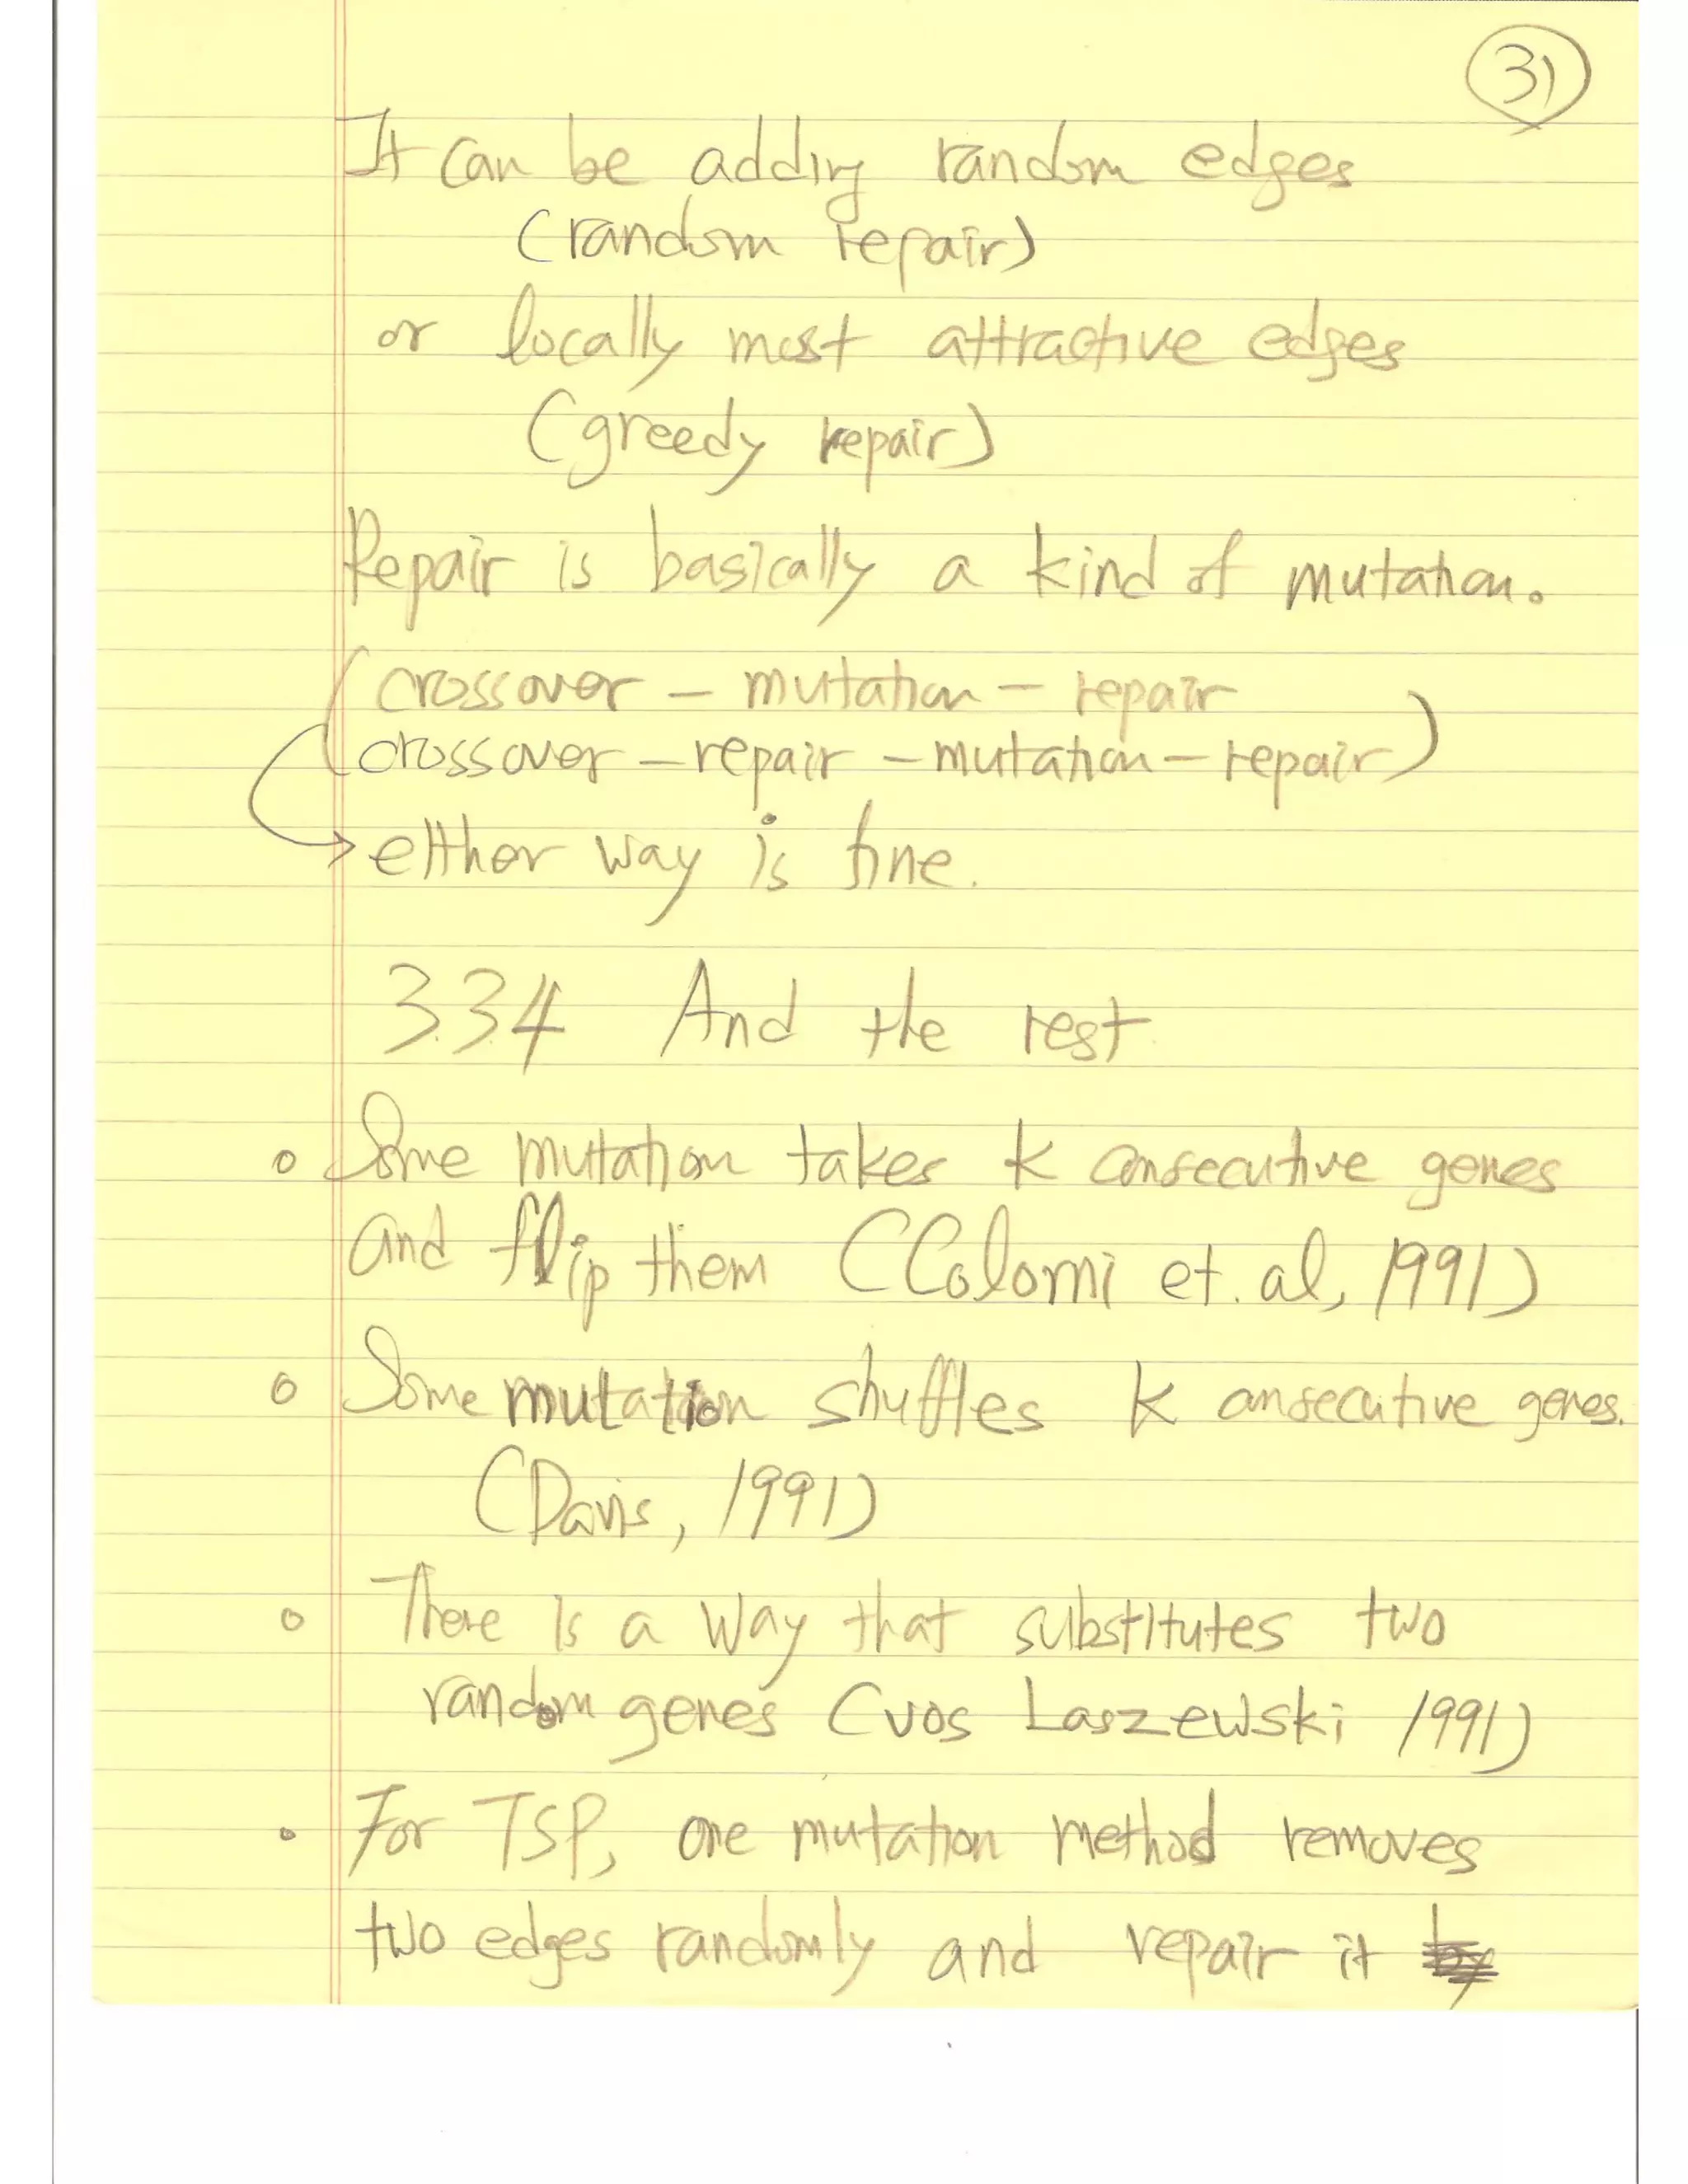 31
It can be adding random edges
(random repair)
or locally most attractive edges
(greedy repair)
Repair is basically a kind of mutation.
(crossover - mutation - repair
crossover - repair - mutation - repair)
→ either way is fine.
3.3.4 And the rest
o Some mutation takes k consecutive genes
and flip them (Colomi et. al, 1991)
o Some mutation shuffles k consecutive genes.
(Davis, 1991)
o There is a way that substitutes two
random genes (vos Laszewski 1991)
o For TSP, one mutation method removes
two edges randomly and repair it